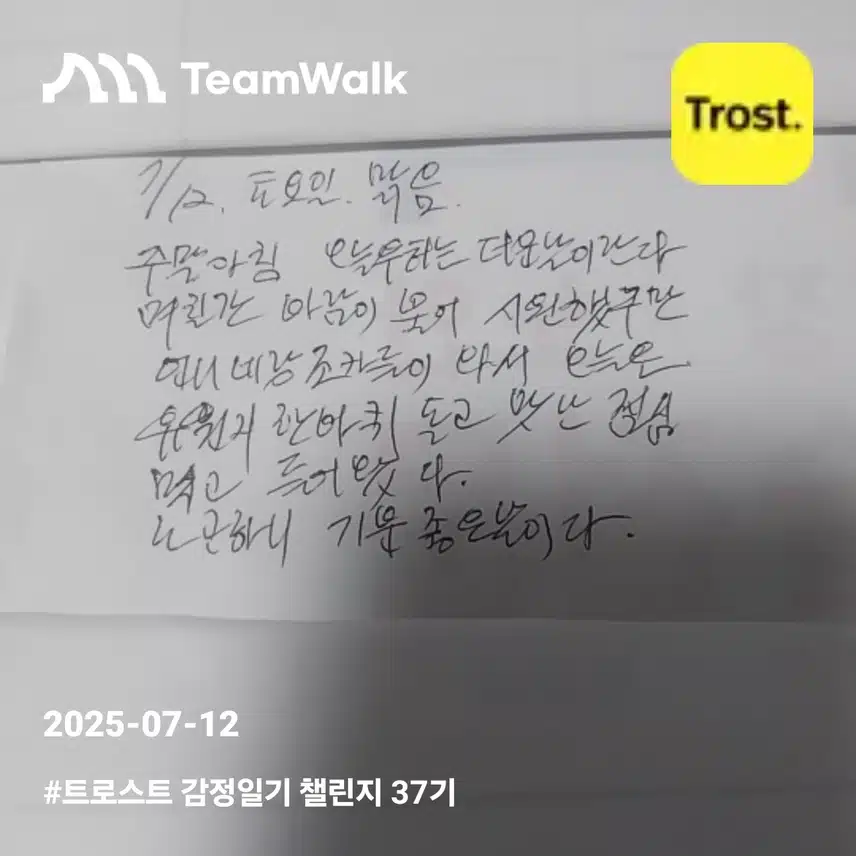 TeamWalk
Trost.
7/12. 토요일. 맑음.
주말아침 오늘 더운날이란다
며칠간 바람이 불어 시원했구만
언니네랑 조카들이 와서 오늘은
유원지 한바퀴 돌고 맛난 점심
먹고 들어왔다.
노곤하니 기분좋은날이다.
2025-07-12
#트로스트 감정일기 챌린지 37기